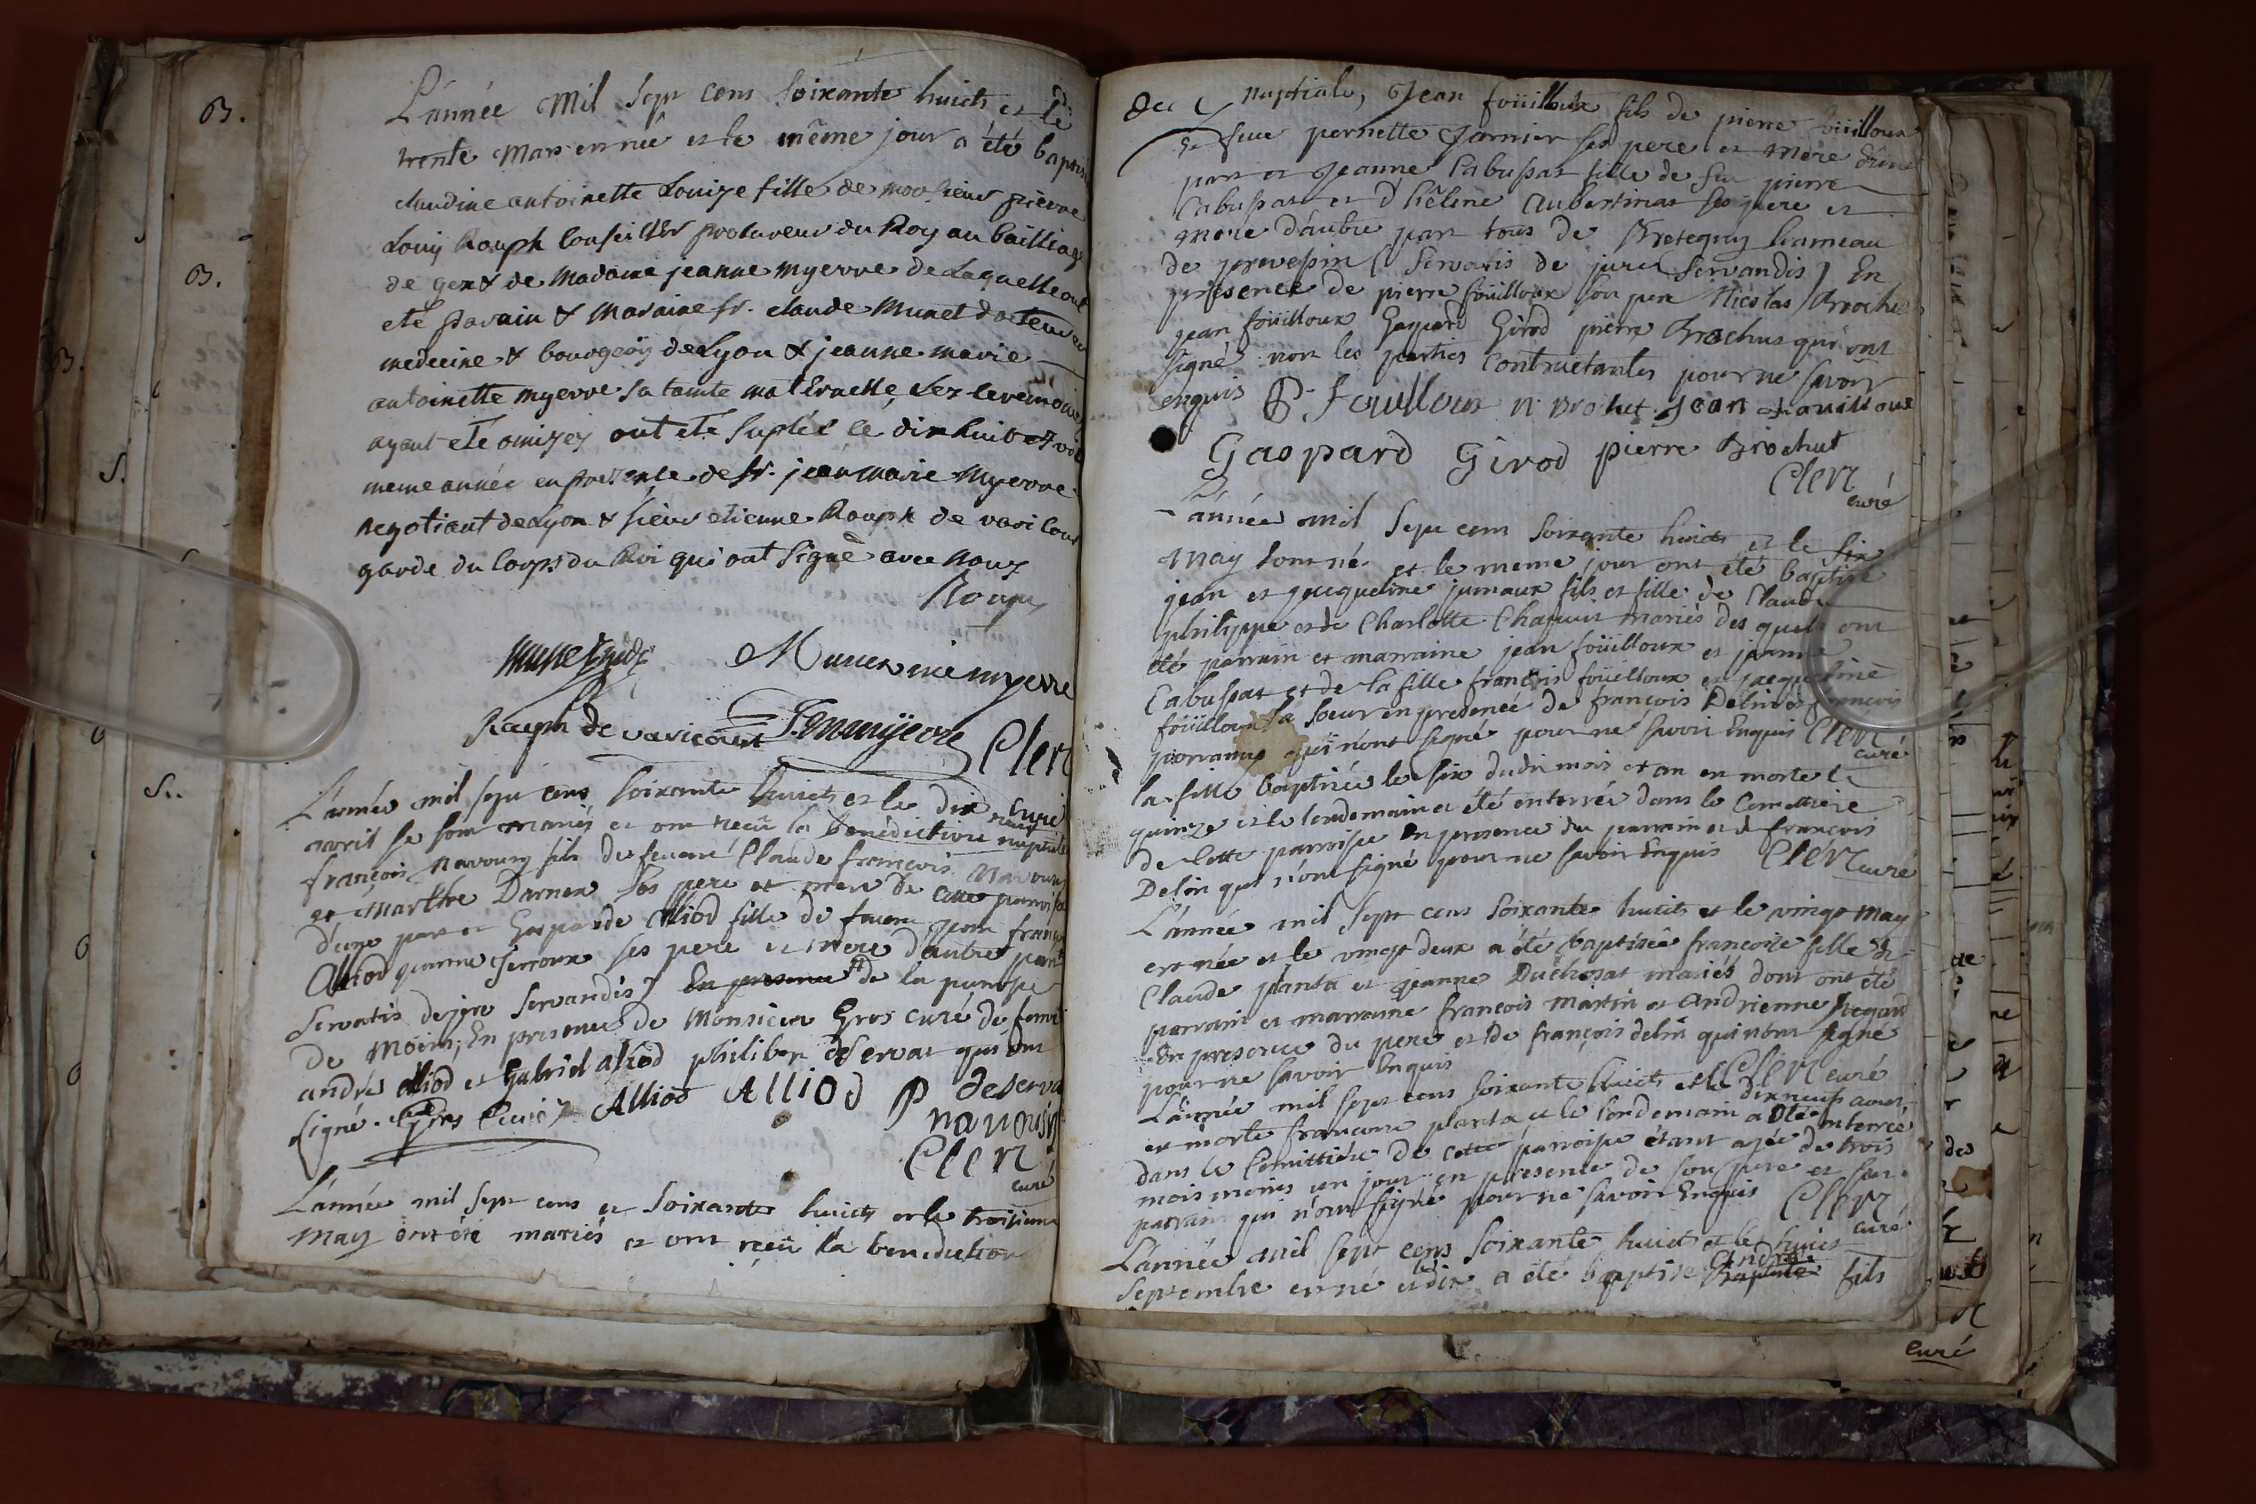 L'année Mil Sept cens soixante huict et le
trente Mars est née et le même jour a été baptisé
claudine antoinette Louize fille de monsieur pierre
Louis Rouph Conseiller procureur du Roy au bailliage
de gex & de madame jeanne myevre de Laquelle ont
eté parain & maraine sr. claude Munet docteur en
medecine & bourgeois de Lyon & jeanne marie
antoinette myevre sa tante maternelle, Les ceremonies
ayant eté omizes ont eté suplées ce dix huit avril
meme année en presence de sr. jean marie Myevre
negotiant de Lyon & sieur etienne Rouph de varicour
garde du Corps du Roi qui ont signé avec nous
Rouph
Munet Myevre
Rouph de varicourt J. m. myevre Clerc
curé
L'année mil sept cens soixante huict et le dix neuf
avril se sont mariés et ont reçû la bénédiction nuptiale
françois navoury fils de feu Claude françois Navoury
et Marthe Darnex ses pere et mere de cette parroisse
d'une part et Gasparde Alliod fille de feu jean françois
Alliod jeanne Jerroux ses pere et mere d'autre part
Servatis de jure servandis / En presence de la parroisse
de Moëns, En presence de Monsieur Gros curé de
andré Alliod et Gabriel alliod philibert deservat qui ont
signé. Gros Curé Alliod Alliod P deserva
navoury
Clerc
curé
L'année mil sept cens et soixante huict et le troisieme
May ont été mariés et ont reçû la benediction
nuptiale, Jean foüilloux fils de pierre foüilloux
et feue pernette Jarnier ses pere et mere d'une
part et Jeanne Cabussat fille de feu pierre
Cabussat et d'hélène Aubertinat ses pere et
mere d'autre part tous de Bretegny hameau
de prevessin (Servatis de jure Servandis) En
presence de pierre foüilloux son pere Nicolas Brochu
jean foüilloux Gaspard Girod pierre Brochut qui ont
signé non les parties contractantes pour ne savoir
enquis P. Fouilloux N Brochut Jean fouilloux
Gaspard Girod pierre Brochut
Clerc
curé
L'année mil sept cens soixante huict et le six
may sont né et le meme jour ont été baptisé
jean et jacqueline jumaux fils et fille de Claude
philippe et de Charlotte Chapuis mariés des quels ont
été parrain et marraine jean foüilloux et jeanne
Cabussat et de la fille françois foüilloux et jacqueline
foüilloux sa soeur en presence de françois Delin et françois
qui n'ont signé pour ne savoir Enquis Clerc
curé
la fille baptisée le six dudit mois et an est morte le
quinze et le lendemain a été enterrée dans le Cemettiere
de Cette parroisse En presence du parrain et de françois
Delin qui n'ont signé pour ne savoir Enquis Clerc curé
L'année mil sept cens soixante huict et le vingt May
est née et le vingt deux a été baptisée françoise fille de
Claude planta et jeanne Duchosat mariés dont ont été
parrain et marraine françois Martin et Andrienne Regard
En presence du pere et de françois delin qui n'ont signé
pour ne savoir Enquis Clerc curé
L'année mil sept cens soixante huict et le dix neuf aout
est morte françoise planta et le lendemain a été enterrée
dans le Cemittiere de cette parroisse étant agée de trois
mois moins un jour en presence de son pere et son
parrain qui n'ont signé pour ne savoir Enquis Clerc
curé
L'année mil sept cens soixante huict et le huict
Septembre est né et le dix a été baptisé André fils
B.
B.
B.
S.
S.
curé